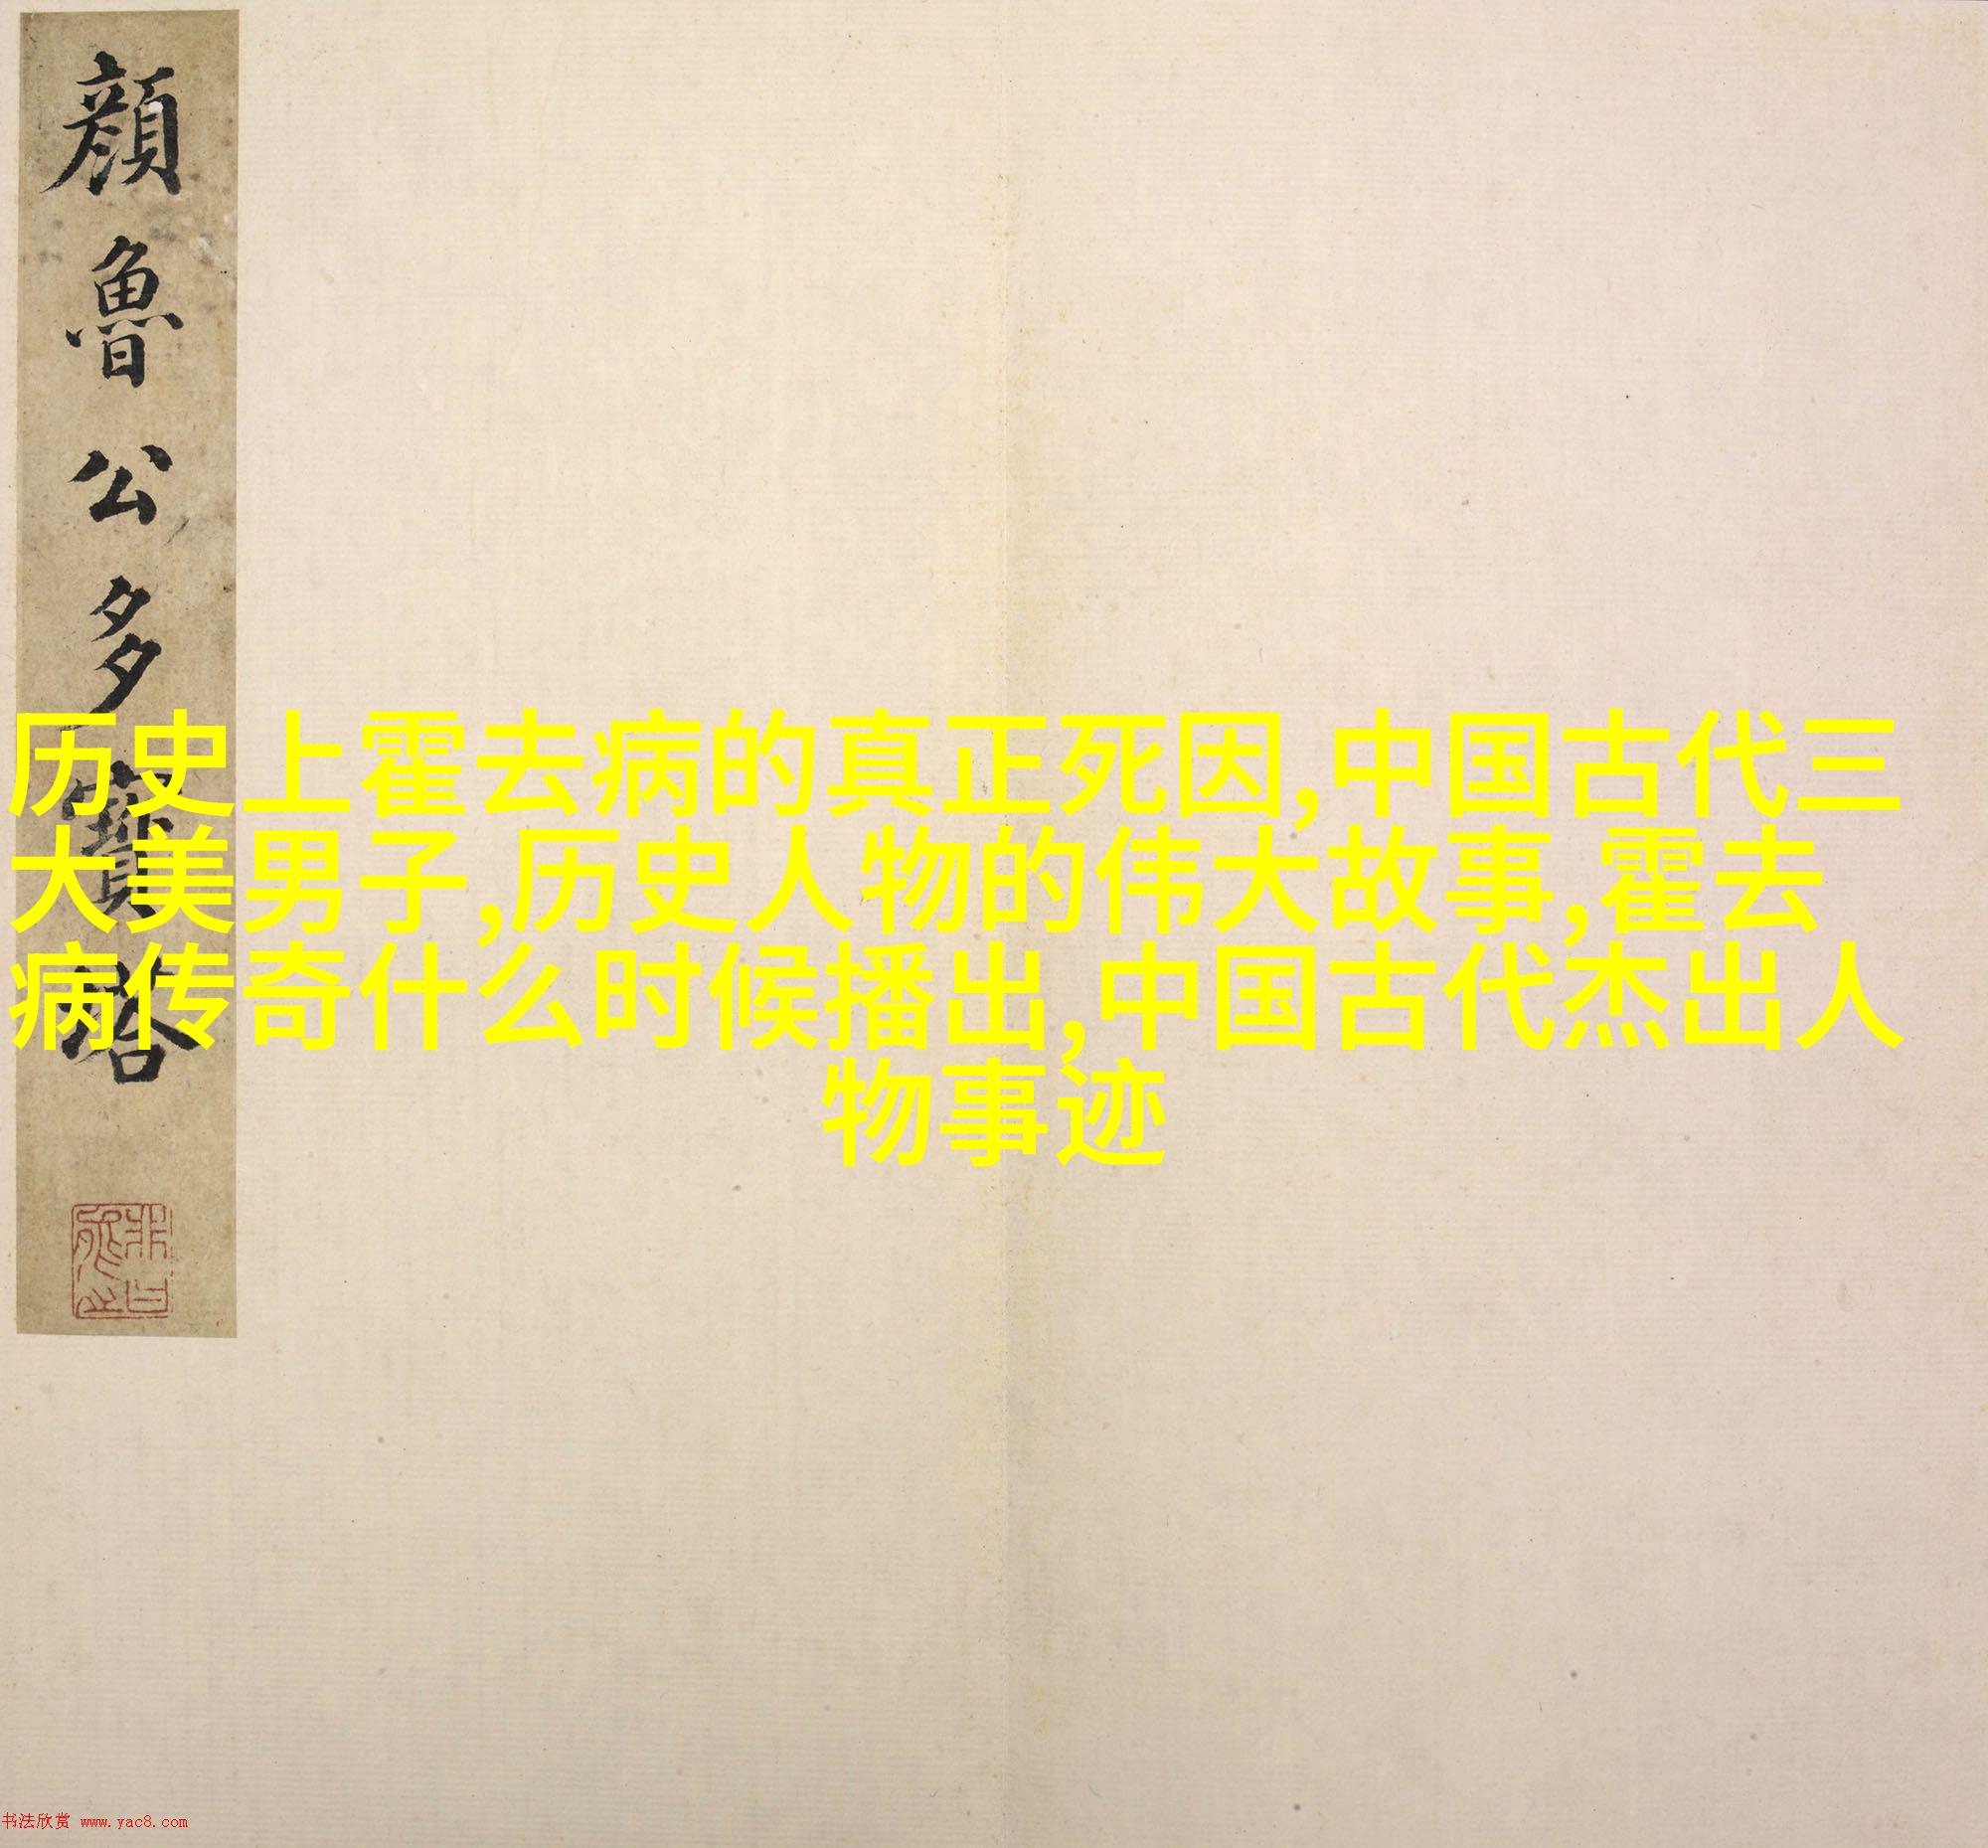 顔魯公多寶塔
历史上霍去病的真正死因,中国古代三
大美男子,历史人物的伟大故事,霍去
病传奇什么时候播出,中国古代杰出人
物事迹
书法欣赏 www.yac8.com